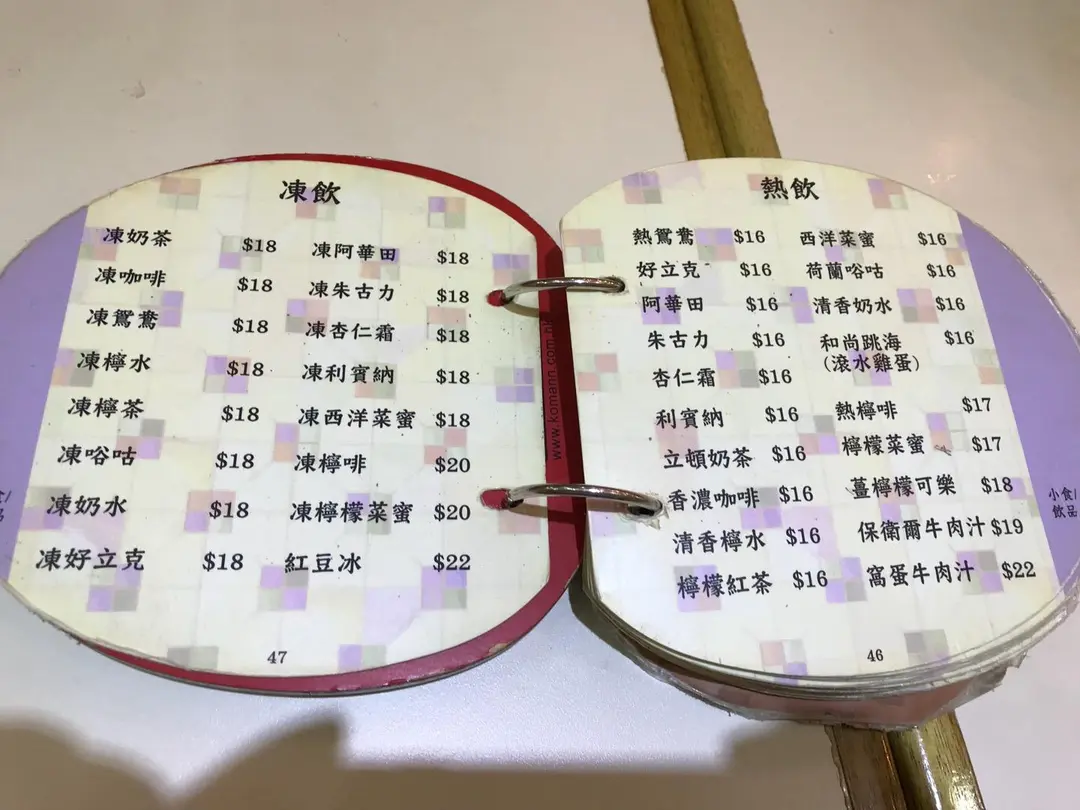 凍飲
凍奶茶 $18
凍咖啡 $18
凍鴛鴦 $18
凍檸水 $18
凍檸茶 $18
凍唂咕 $18
凍奶水 $18
凍好立克 $18
凍阿華田 $18
凍朱古力 $18
凍杏仁霜 $18
凍利賓納 $18
凍西洋菜蜜 $18
凍檸啡 $20
凍檸檬菜蜜 $20
紅豆冰 $22
47
www.komann.com.hk
熱飲
熱鴛鴦 $16
好立克 $16
阿華田 $16
朱古力 $16
杏仁霜 $16
利賓納 $16
立頓奶茶 $16
香濃咖啡 $16
清香檸水 $16
檸檬紅茶 $16
西洋菜蜜 $16
荷蘭唂咕 $16
清香奶水 $16
和尚跳海 $16
(滾水雞蛋)
熱檸啡 $17
檸檬菜蜜 $17
薑檸檬可樂 $18
保衛爾牛肉汁 $19
窩蛋牛肉汁 $22
46
小食/
飲品